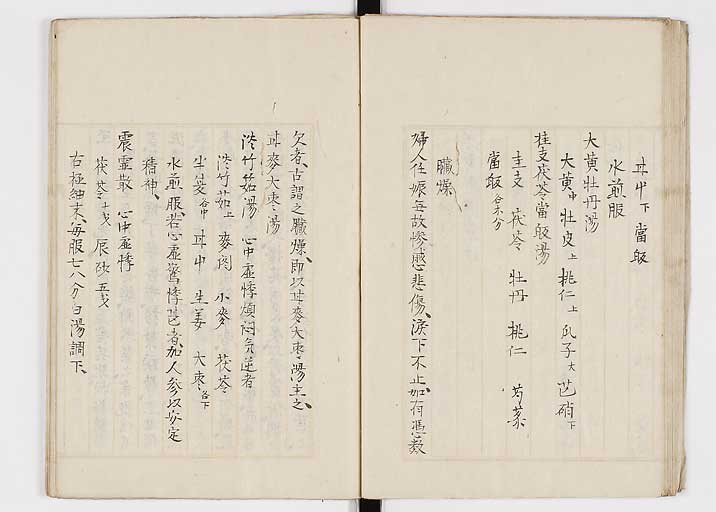 甘中下 當皈
水煎服
大黄牡丹湯
大黄中 牡皮上 桃仁上 瓜子大 芒硝下
桂支茯苓當皈湯
圭支 茯苓 牡丹 桃仁 芍薬
當皈各木分
臓燥
婦人任娠無故惨感悲傷、涙下不止、如有憑数
欠者、古謂之臓燥、即以甘麥大枣湯主之、
甘麥大枣湯
淡竹茹湯 心中虚悸煩悶気逆者
淡竹茹上 麥肉 小麥 茯苓
半夏各中 甘中 生姜 大枣各下
水煎服、若心虚驚悸者、加人参以安定
精神、
震霊散 心中虚悸
茯苓十戋 辰砂五戋
右極細末、毎服七八分白湯調下、